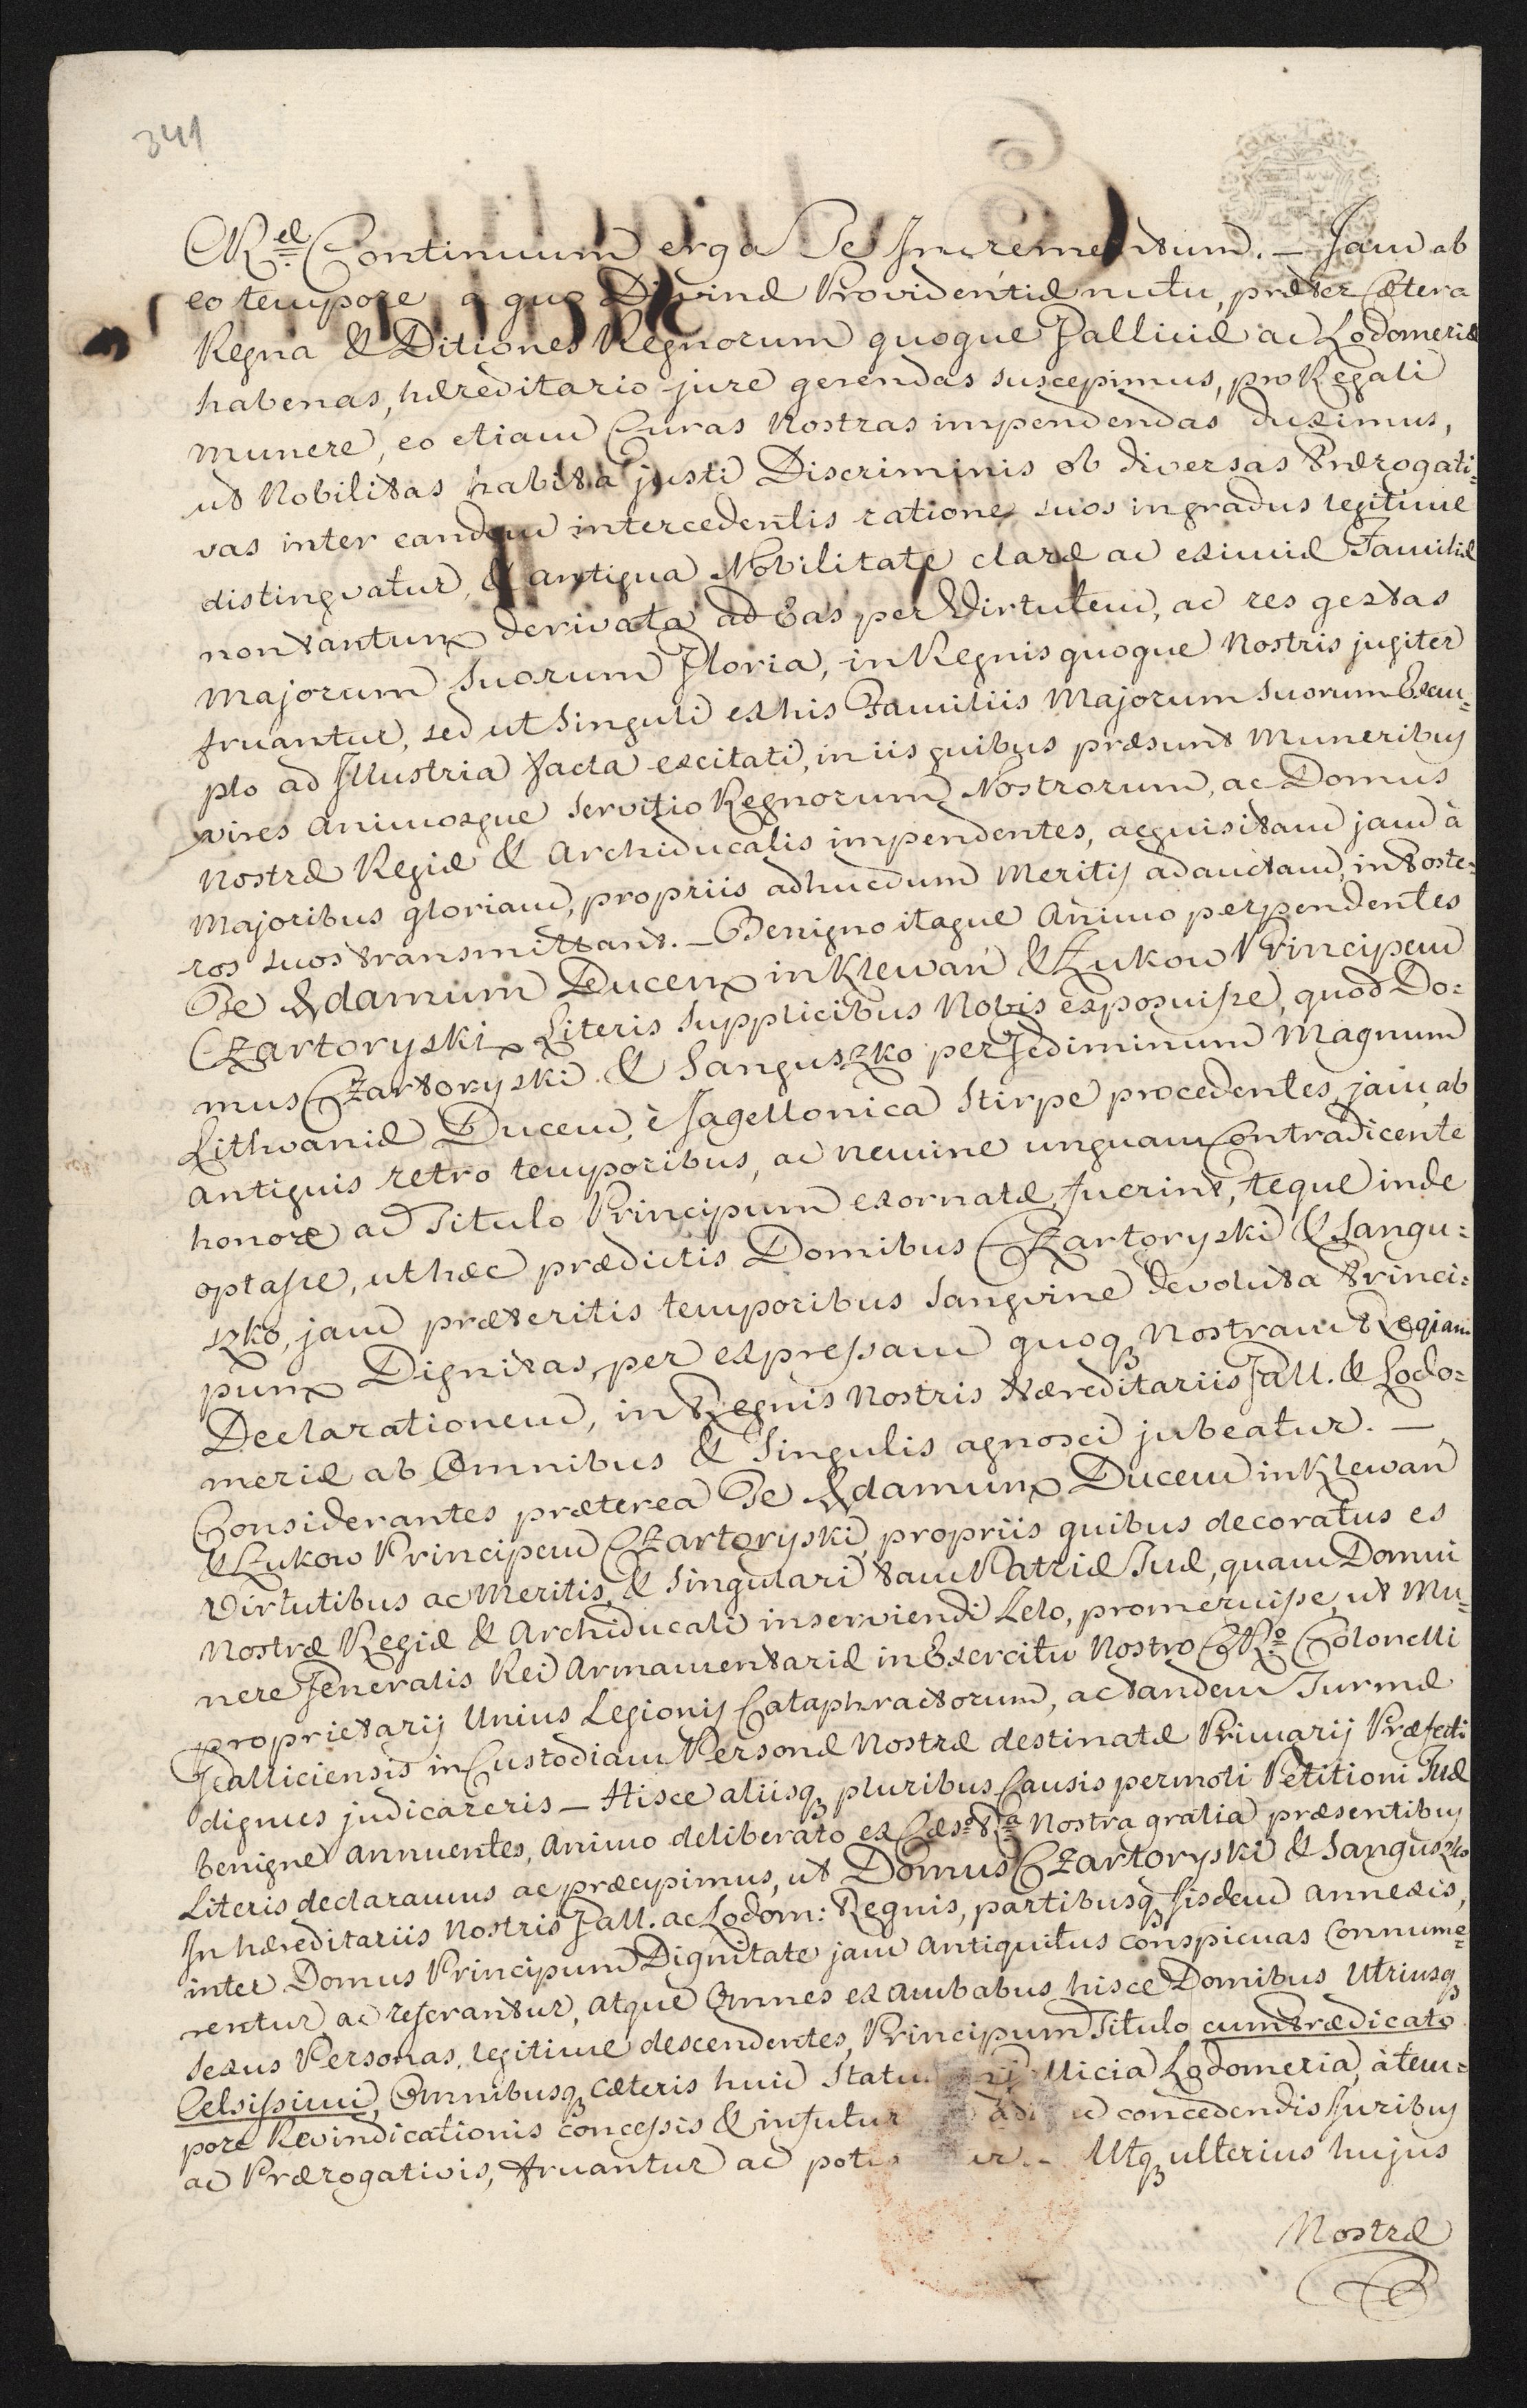 341
CR.el Continuum erga Te Incrementum. — Jam ab
eo tempore a quo Divinæ Providentiæ nutu, præter Cætera
Regna & Ditiones Regnorum quoque Galliciæ ac Lodomeriæ
habenas, hæreditario jure gerendas suscepimus, pro Regali
munere, eo etiam Curas Nostras impendendas duximus,
ut Nobilitas habita justi Discriminis ob diversas Prærogati=
vas inter eandem intercedentis ratione, suos in gradus legitime
distingvatur, & antiqua Nobilitate claræ ac eximiæ Familiæ
non tantum derivata ad Eas per Virtutem, ac res gestas
Majorum Suorum Gloria, in Regnis quoque Nostris jugiter
fruantur, sed ut Singuli ex his Familiis Majorum suorum Exem=
plo ad Illustria facta excitati, in iis quibus præsunt Muneribus
vires Animosque Servitio Regnorum Nostrorum, ac Domus
Nostræ Regiæ & Archiducalis impendentes, acquisitam jam à
Majoribus gloriam, propriis adhucdum Meritis adauctam, in Poste=
ros suos transmittant. — Benigno itaque Animo perpendentes
Te Adamum Ducem in Klewań & Żukow Principem
Czartoryski, Literis Supplicibus Nobis exposuisse, quod Do=
mus Czartoryski & Sanguszko per Gediminum Magnum
Lithvaniæ Ducem, è Jagellonica Stirpe procedentes, jam ab
antiquis retro temporibus, ac nemine unquam Contradicente
honore ac Titulo Principum exornatæ fuerint, teque inde
optasse, ut hæc prædictis Domibus Czartoryski & Sangu=
szko, jam præteritis temporibus Sangvine devoluta Princi=
pum Dignitas, per expressam quoq nostram Regiam
Declarationem, in Regnis Nostris Hæreditariis Gall. & Lodo=
meriæ ab Omnibus & Singulis agnosci jubeatur. —
Considerantes præterea Te Adamum Ducem in Klewań
& Żukow Principem Czartoryski, propriis quibus decoratus es
Virtutibus ac Meritis, & Singulari tam Patriæ Tuæ, quam Domui
Nostræ Regiæ & Archiducali inserviendi Zelo, promeruisse, ut Mu=
nere Generalis Rei Armamentariæ in Exercitu Nostro C.R.o Colonelli
proprietarij Unius Legionis Cataphractorum, ac tandem Turmæ
Galliciensis in Custodiam Personæ Nostræ destinatæ Primarij Præfecti
dignus judicareris — Hisce aliisq pluribus Causis permoti Petitioni Tuæ
benigne annuentes, Animo deliberato ex Cæs.o R.a Nostra gratia præsentibus
Literis declaramus ac præcipimus, ut Domus Czartoryski & Sanguszko
In hæreditariis Nostris Gall. ac Lodom: Regnis, partibusq iisdem annexis,
inter Domus Principum Dignitate jam Antiquitus conspicuas Connume=
rentur ac referantur, atque Omnes ex ambabus hisce Domibus Utriusq
Sexus Personas, legitime descendentes, Principum Titulo cum Prædicato
Celsissimi, Omnibusq Cæteris huic Statui llicia Lodomeria, à tem=
pore Revindicationis concessis & in futur concedendis Juribus
ac Prærogativis, fruantur ac pot ur. — Utq ulterius hujus
Nostræ